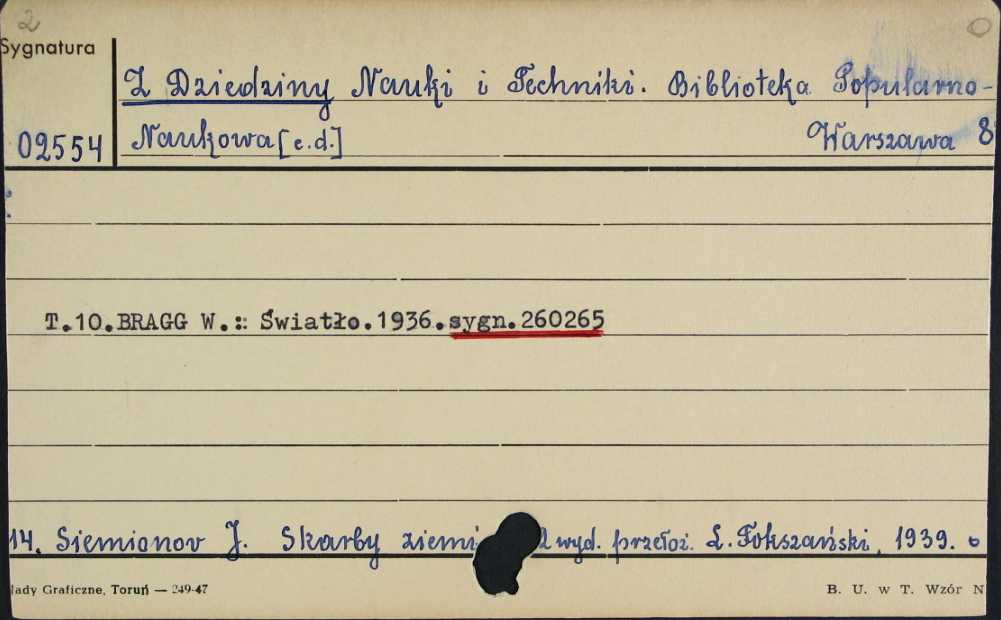 2
Sygnatura
Z Dziedziny Nauki i Techniki. Biblioteka Popularno-
02554 Naukowa [e.d.] Warszawa 8
T.10.BRAGG W.:: Światło.1936.sygn.260265
14. Siemionov J. Skarby ziemi 2 wyd. przełoż. L. Fokszański, 1939.
łady Graficzne, Toruń — 249-47 B. U. w T. Wzór N